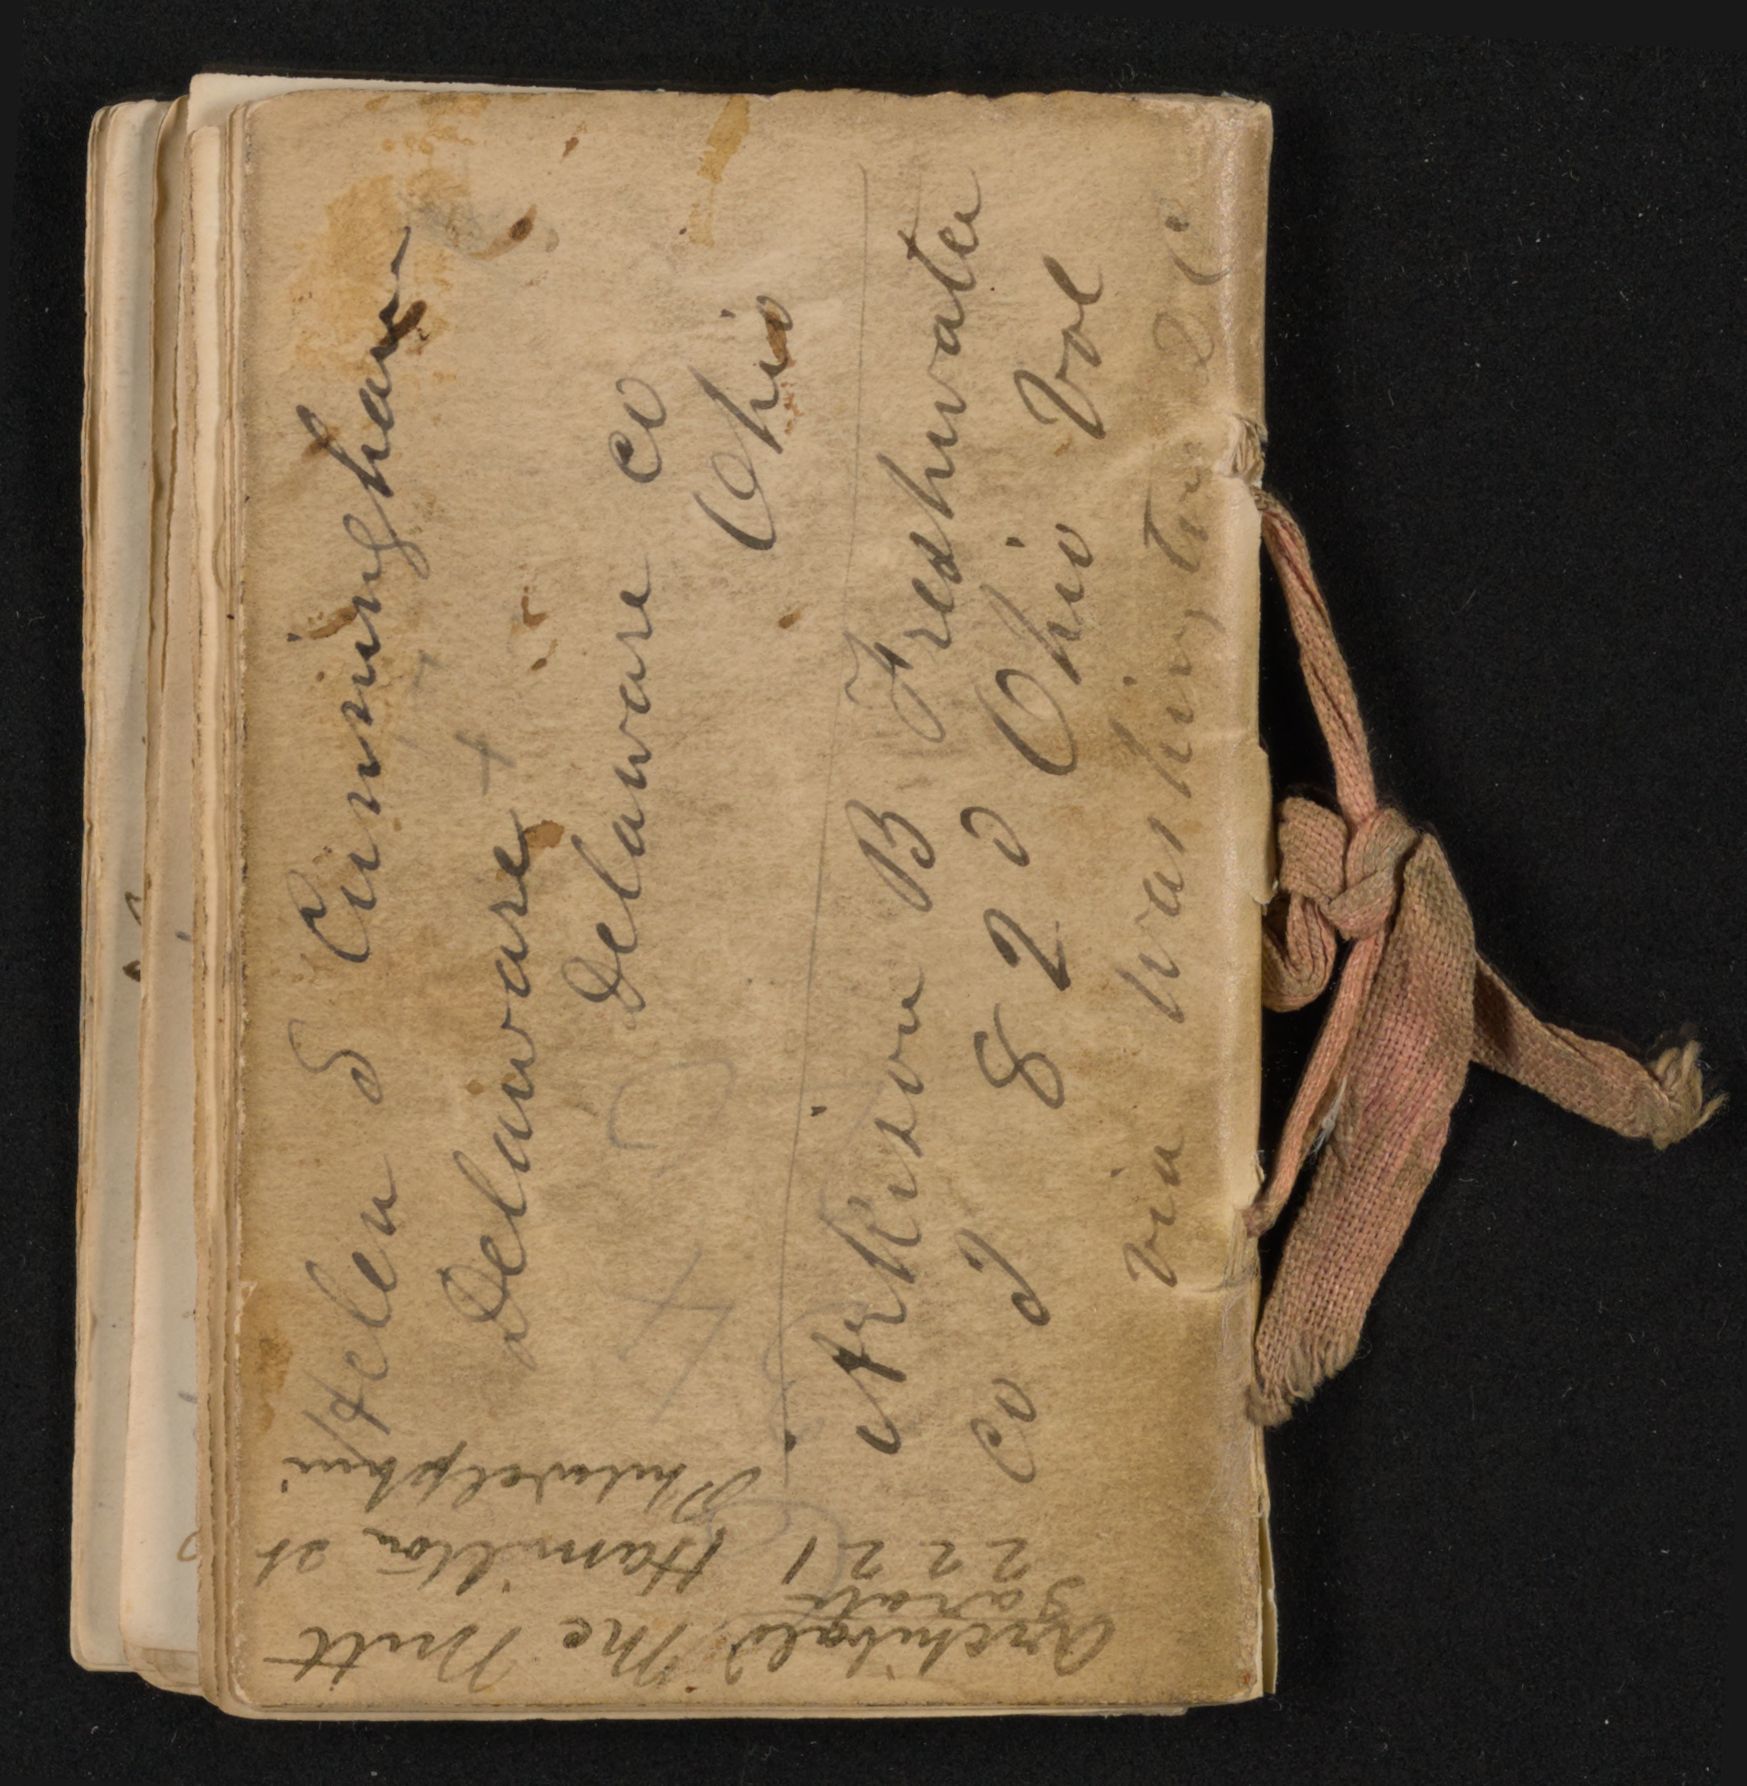 Helen S Cunningham
Delaware
Delaware co
Ohio
Atkison B Freshwater
co I 82d Ohio Vol
via Washington D C
Archibald Mc Nutt
Sarah
2221 Hamilton st
Philadelphia